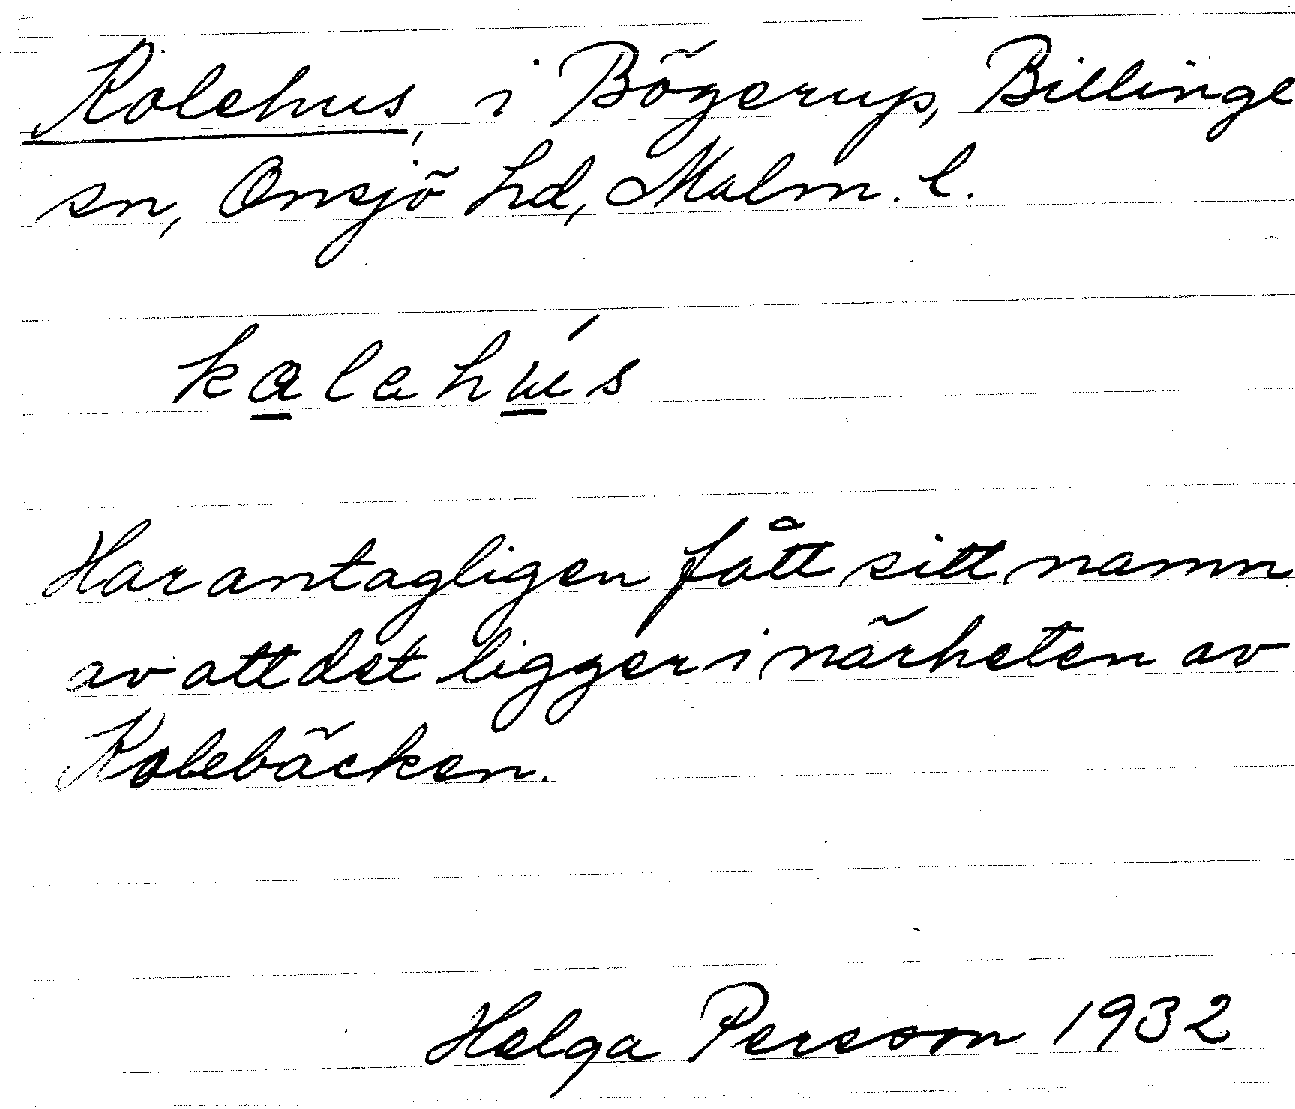 Kolehus, i Bögerup, Billinge
sn, Onsjö hd, Malm. l.
kalahus
Har antagligen fått sitt namn
av att det ligger i närheten av
Kolebäcken.
Helga Persson 1932